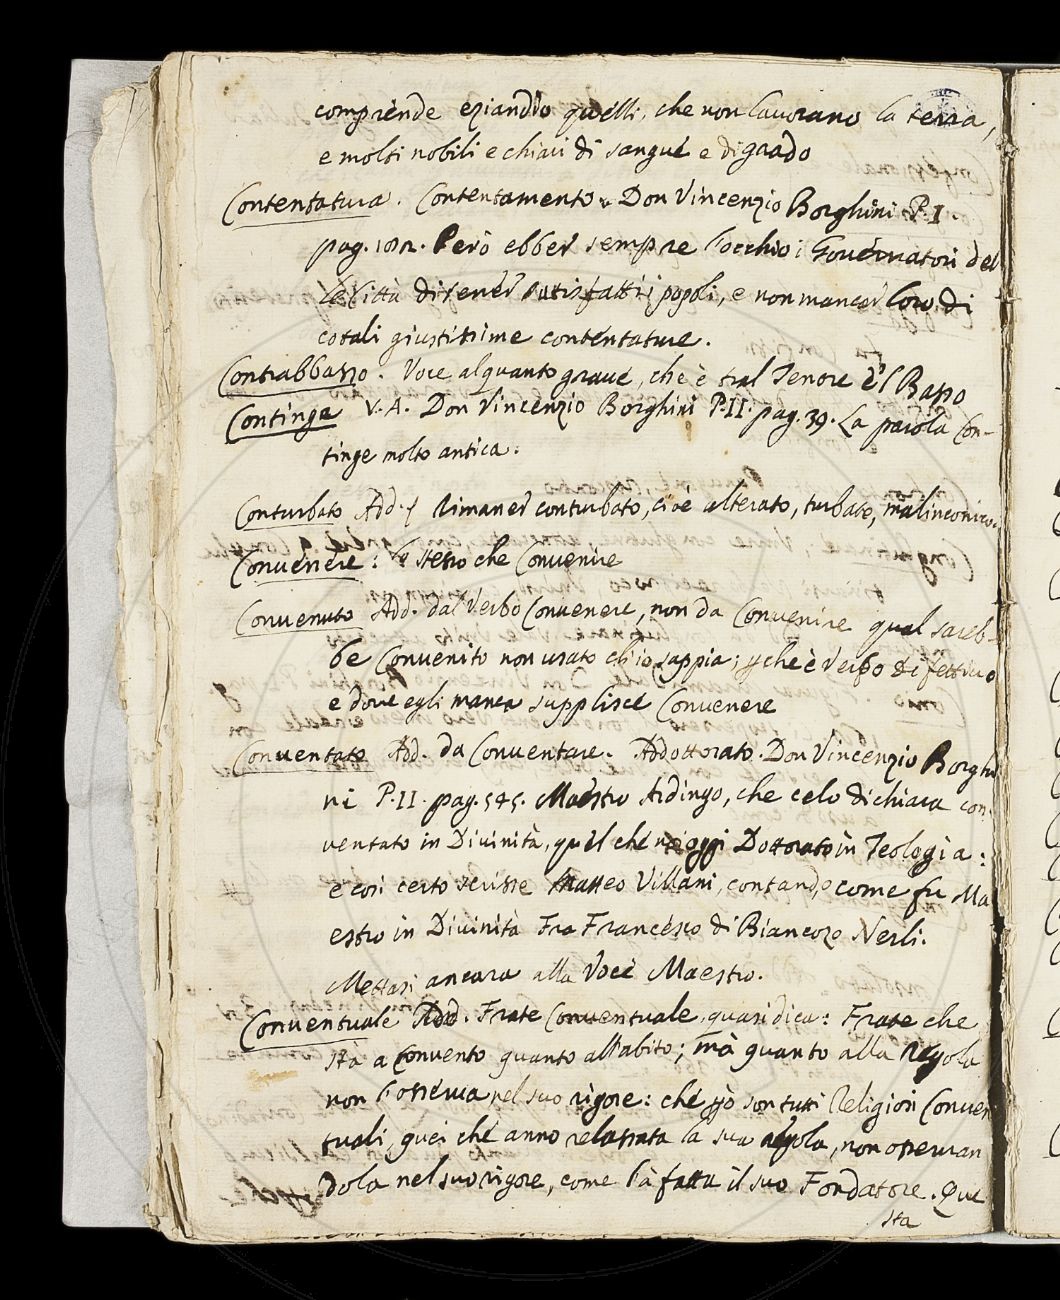 comprende eziandio quelli, che non lavorano la terra,
e molti nobili e chiari di sangue e di grado
Contentatura. Contentamento. Don Vincenzio Borghini P. I
pag. Però ebber sempre l'occhio i Governatori del
le Città di tener satisfatti i popoli, e non mancar loro di
cotali giustissime contentature.
Contrabbasso. Voce alquanto grave, che è tral Tenore e'l Basso
Continga V. A. Don Vincenzio Borghini P. II. pag. 39. La parola Con-
tinge molto antica.
Conturbato Add. Rimaner conturbato, cioè alterato, turbato, malinconico.
Convenere: Lo stesso che Convenire
Convenuto Add. dal Verbo Convenere, non da Convenire qual sareb-
be Convenito non usato ch'io sappia; che è Verbo difettivo
e dove egli manca supplisce Convenere
Conventato Add. da Conventare. Addottorato. Don Vincenzio Borghi
ni P. II. pag. 545. Maestro Ardingo, che celo dichiara con-
ventato in Divinità, quel che oggi Dottorato in Teologia:
e così certo scrisse Matteo Villani, contando come fu Ma
estro in Divinità Fra Francesco di Biancozo Nerli.
Mettasi ancora alla Voce Maestro.
Conventuale Add. Frate Conventuale, quasi dica: Frate che
stà a Convento quanto all'abito; mà quanto alla Regola
non l'osserva nel suo rigore: che son tutti Religiosi Conven
tuali, quei che anno relassata la sua regola, non osservan
dola nel suo rigore, come l'à fatta il suo Fondatore. Que
sta